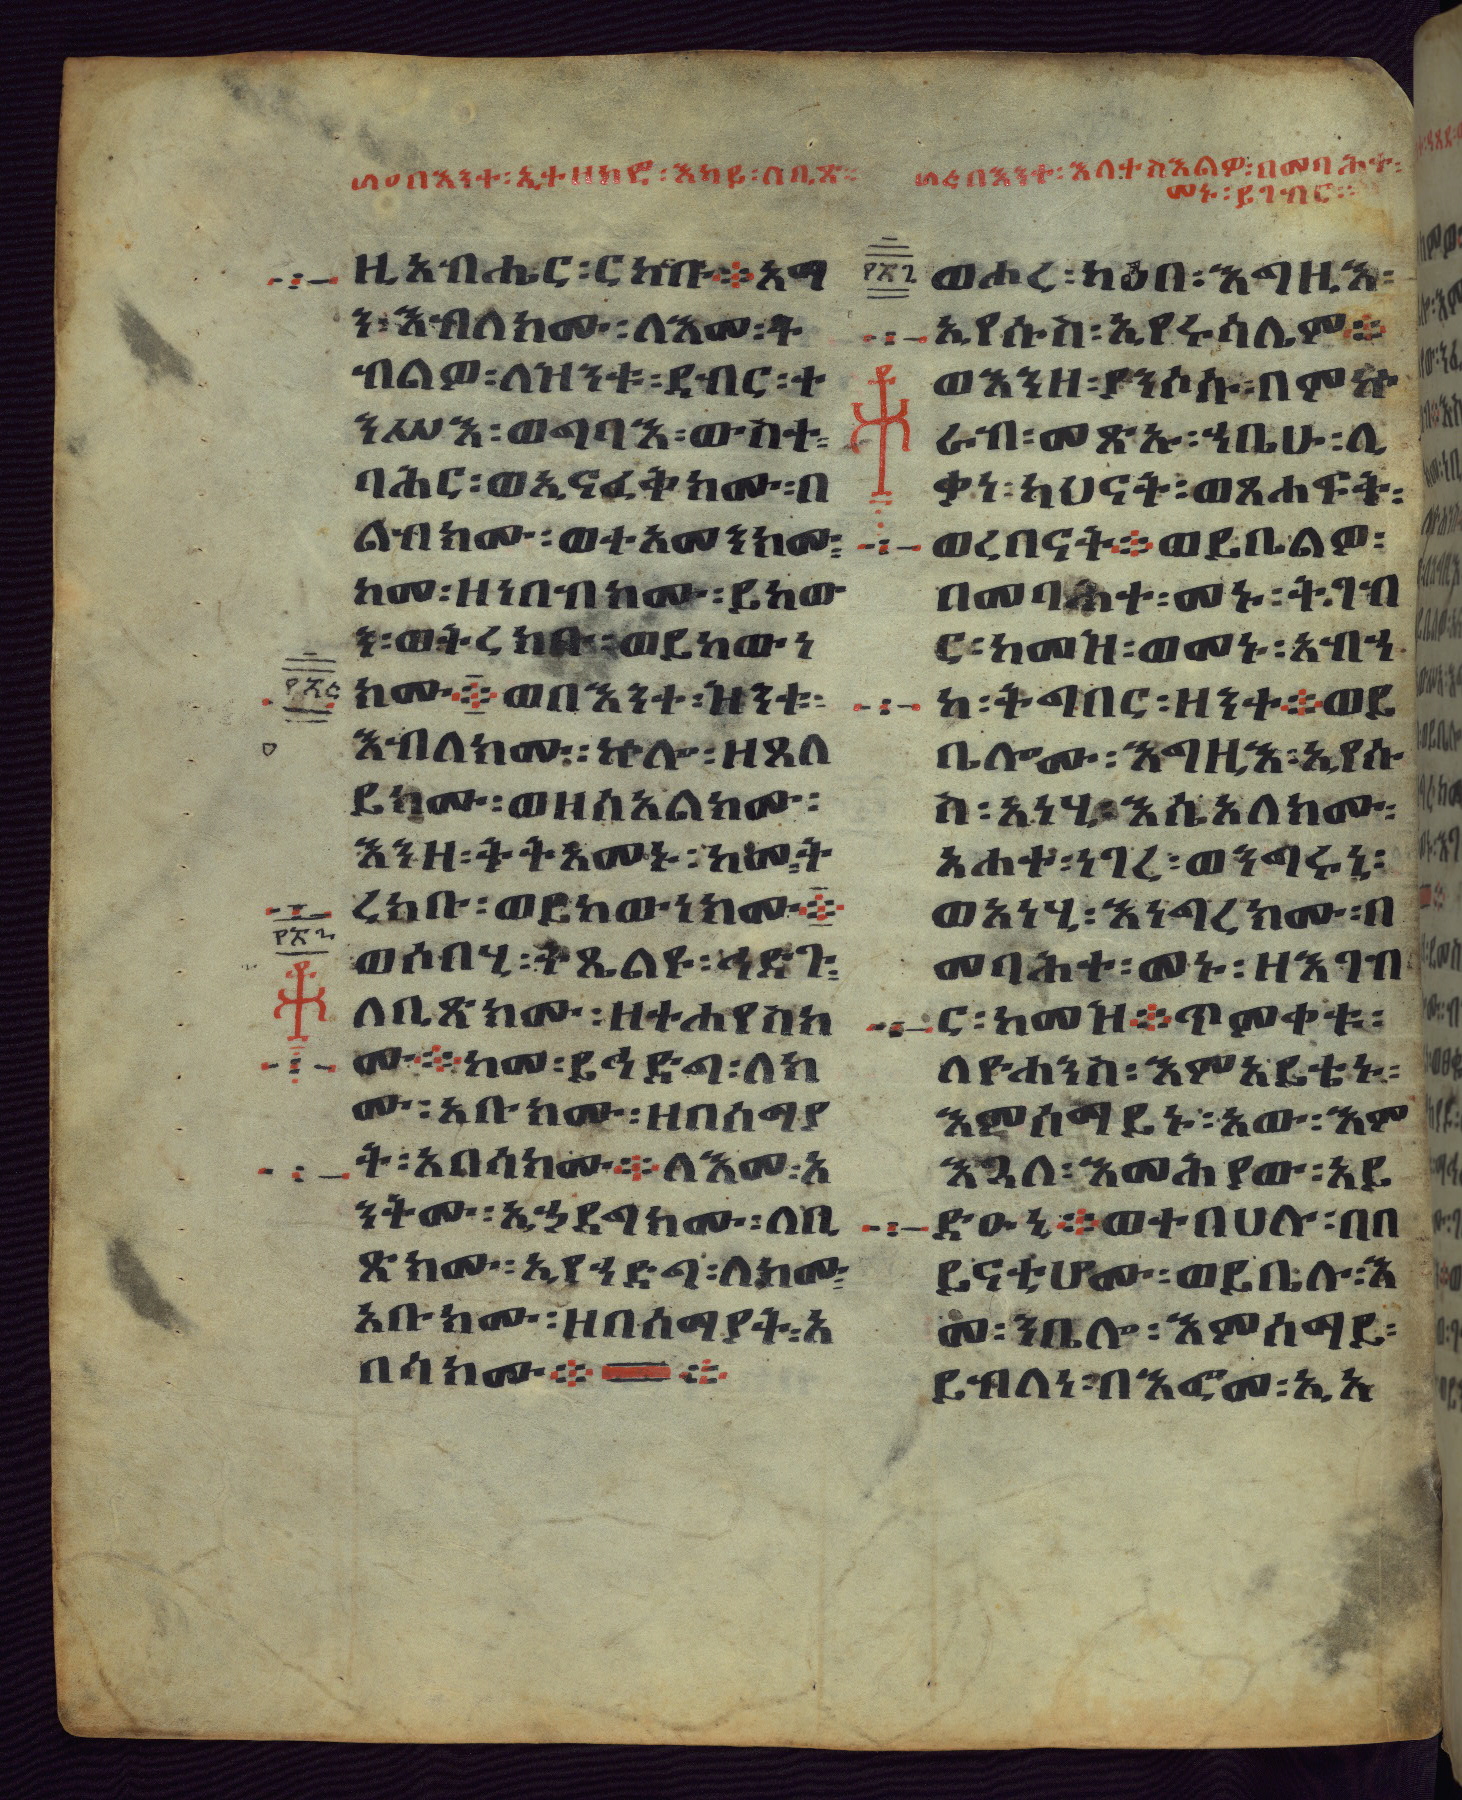 ዚአብሔር ፡ ርክቡ ። አማ
ን ፡ እብለክሙ ፡ ለእመ ፡ ት
ብልዎ ፡ ለዝንቱ ፡ ደብር ፡ ተ
ንሥእ ፡ ወግባእ ፡ ውስተ ፡
ባሕር ፡ ወኢናፈቅክሙ ፡ በ
ልብክሙ ፡ ወተአመንክሙ ፡
ከመ ፡ ዘነበብክሙ ፡ ይከው
ን ፡ ወትረክቡ ፡ ወይከውነ
ክሙ ። ወበእንተ ፡ ዝንቱ ፡
እብለክሙ ፡ ኵሎ ፡ ዘጸለ
ይክሙ ፡ ወዘሰአልክሙ ፡
እንዘ ፡ ትትአመኑ ፡ ከመ ፡ ት
ረክቡ ፡ ወይከውነክሙ ።
ወሶበሂ ፡ ትጼልዩ ፡ ኅድጉ ፡
ለቢጽክሙ ፡ ዘተሐየስክ
ሙ ። ከመ ፡ ይኅድግ ፡ ለክ
ሙ ፡ አቡክሙ ፡ ዘበሰማያ
ት ፡ አበሳክሙ ። ለእመ ፡ አ
ንትሙ ፡ ኢኀደግክሙ ፡ ለቢ
ጽክሙ ፡ ኢየኀድግ ፡ ለክሙ ፡
አቡክሙ ፡ ዘበሰማያት ፡ አ
በሳክሙ ።
ወሐረ ፡ ካዕበ ፡ እግዚእ ፡
ኢየሱስ ፡ ኢየሩሳሌም ።
ወእንዘ ፡ ያንሶሱ ፡ በምኵ
ራብ ፡ መጽኡ ፡ ኀቤሁ ፡ ሊ
ቃነ ፡ ካህናት ፡ ወጸሐፍት ፡
ወረበናት ። ወይቤልዎ ፡
በመባሕተ ፡ መኑ ፡ ትገብ
ር ፡ ከመዝ ፡ ወመኑ ፡ አብሐ
ከ ፡ ትግበር ፡ ዘንተ ። ወይ
ቤሎሙ ፡ እግዚእ ፡ ኢየሱ
ስ ፡ አነሂ ፡ እሴአለክሙ ፡
አሐተ ፡ ነገረ ፡ ወንግሩኒ ፡
ወአነሂ ፡ እነግረክሙ ፡ በ
መባሕተ ፡ መኑ ፡ ዘእገብ
ር ፡ ከመዝ ። ጥምቀቱ ፡
ለዮሐንስ ፡ እምአይቴኑ ፡
እምሰማይኑ ፡ አው ፡ እም
እጓለ ፡ እመሕያው ፡ አይ
ድዑኒ ። ወተበሀሉ ፡ በበ
ይናቲሆሙ ፡ ወይቤሉ ፡ እ
መ ፡ ንቤሎ ፡ እምሰማይ ፡
ይብለነ ፡ በእፎመ ፡ ኢአ